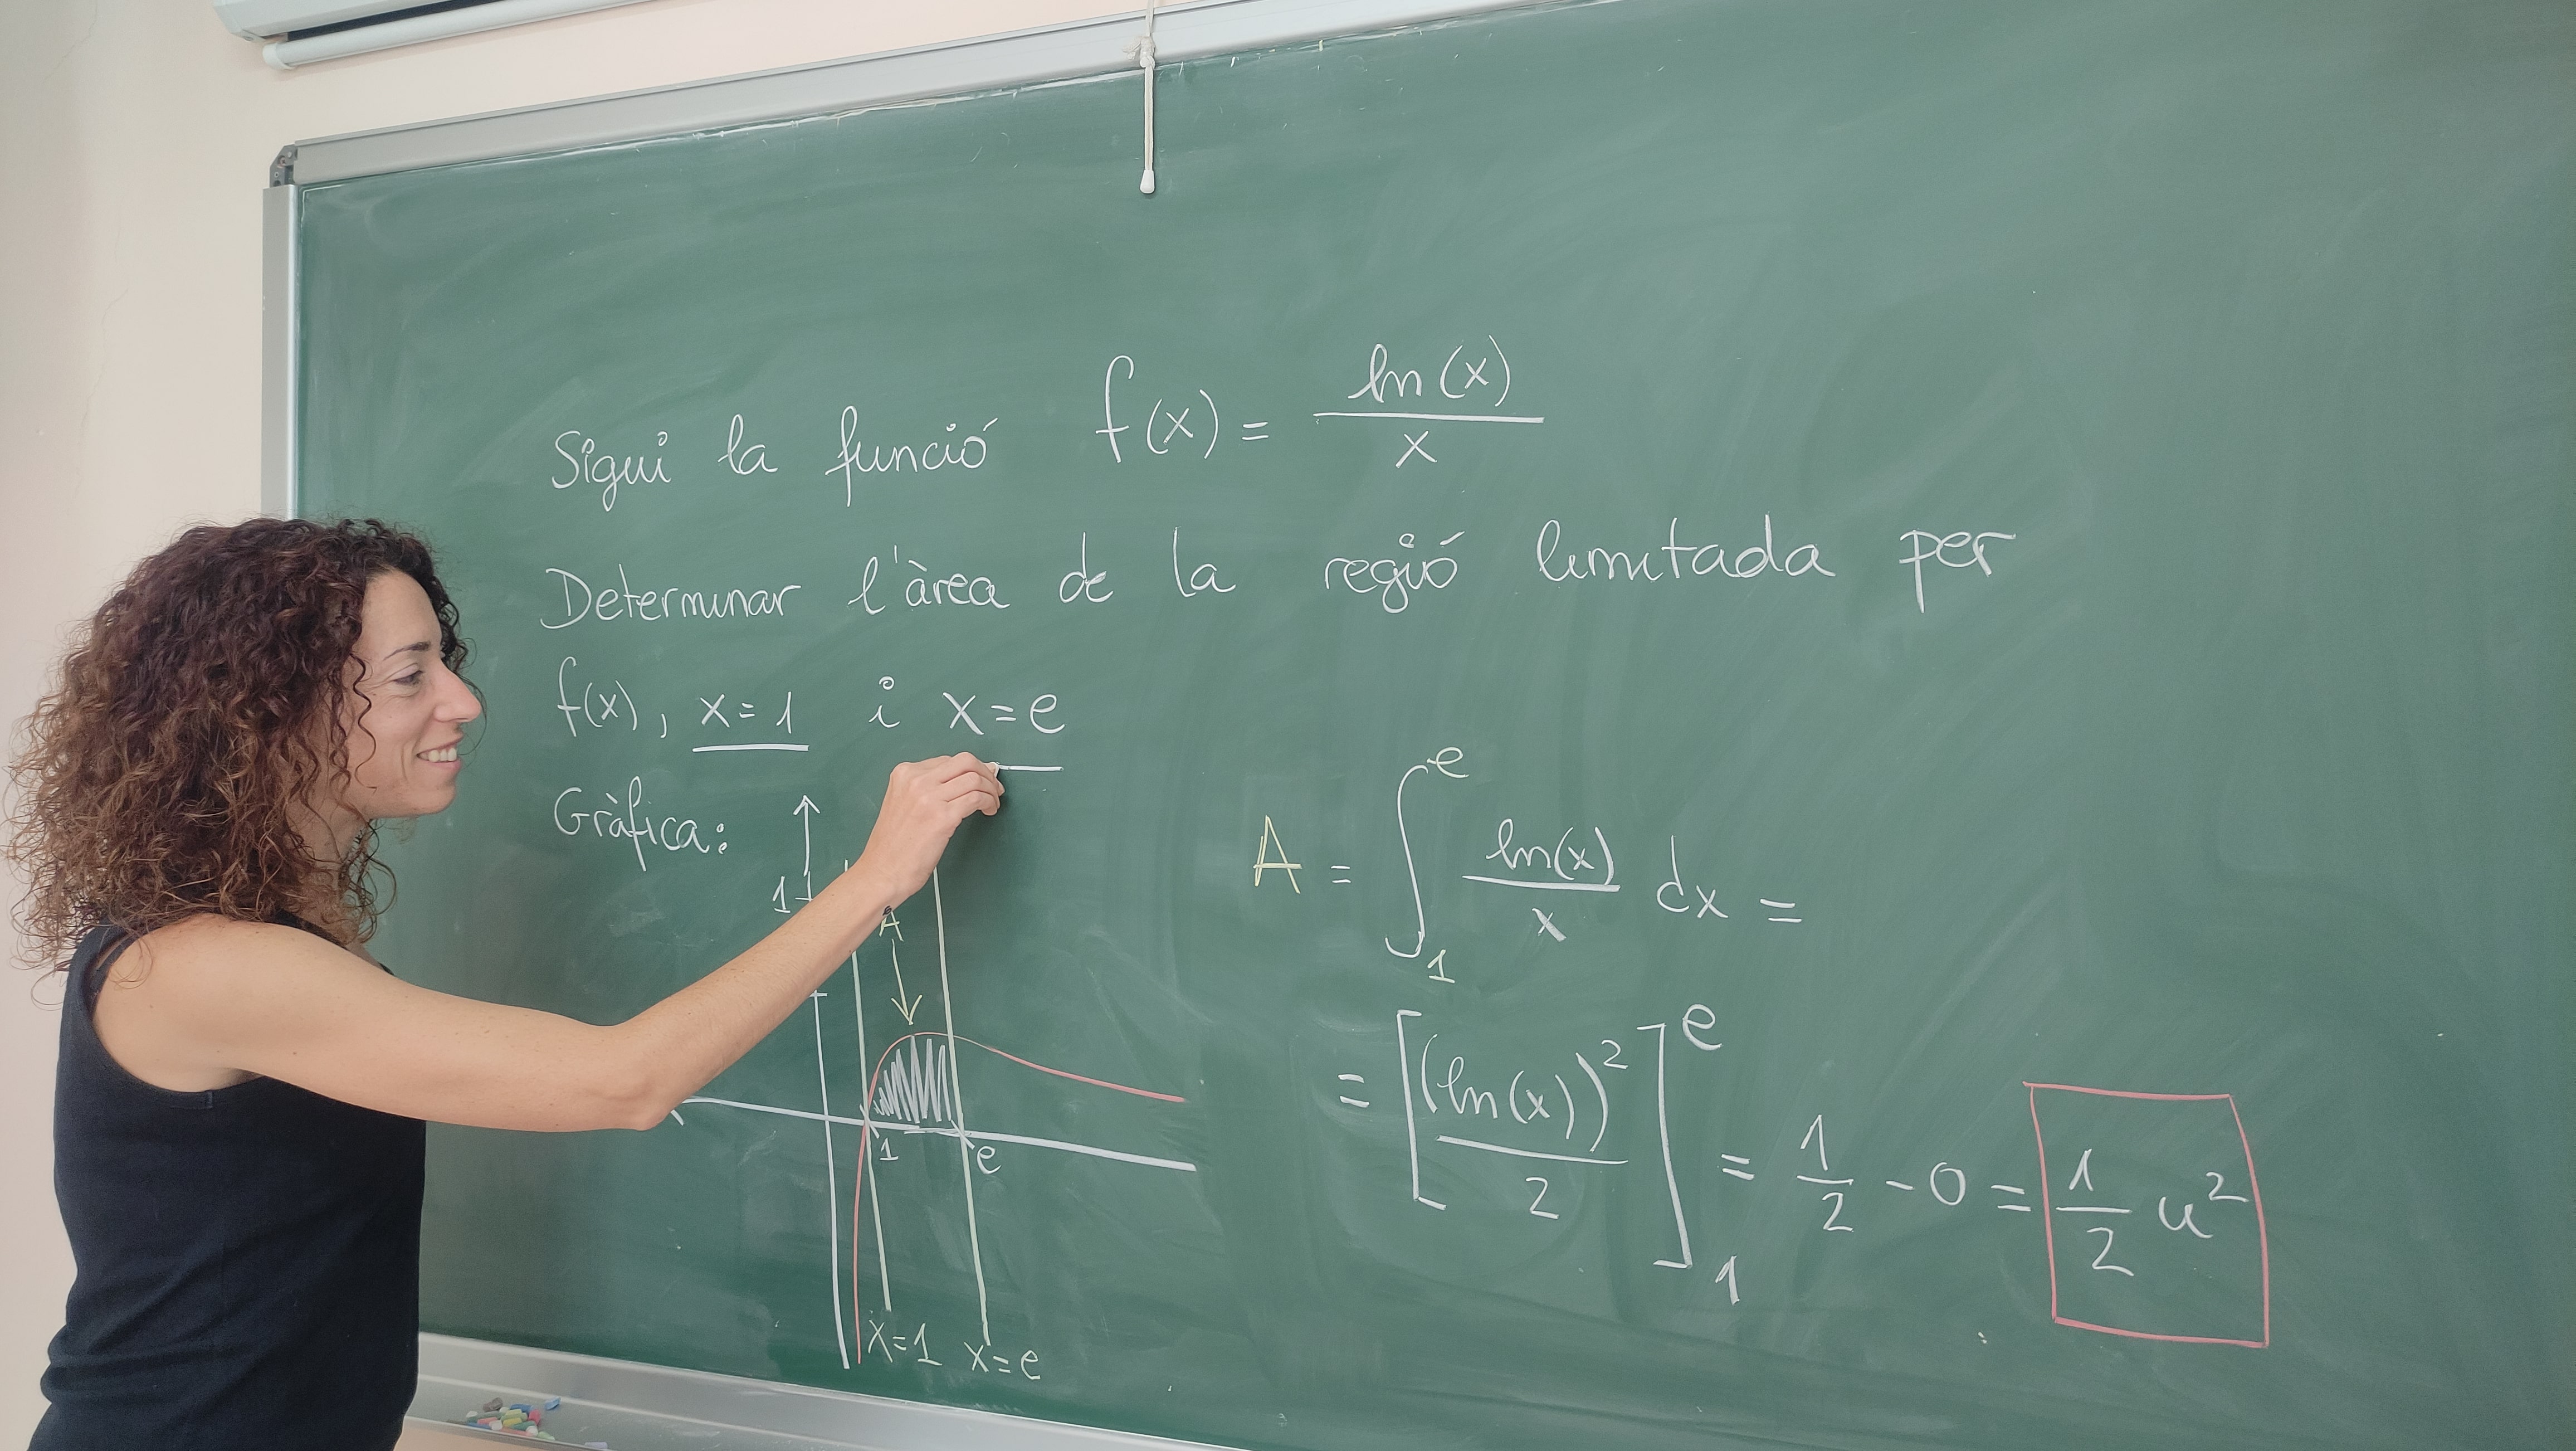 Sigui la funció f(x) = ln(x) / x
Determinar l'àrea de la regió limitada per
f(x), x=1 i x=e
Gràfica:
1
A
1 e
x=1 x=e
A = ∫₁ᵉ ln(x)/x dx =
= [(ln(x))²/2]₁ᵉ = 1/2 - 0 = 1/2 u²